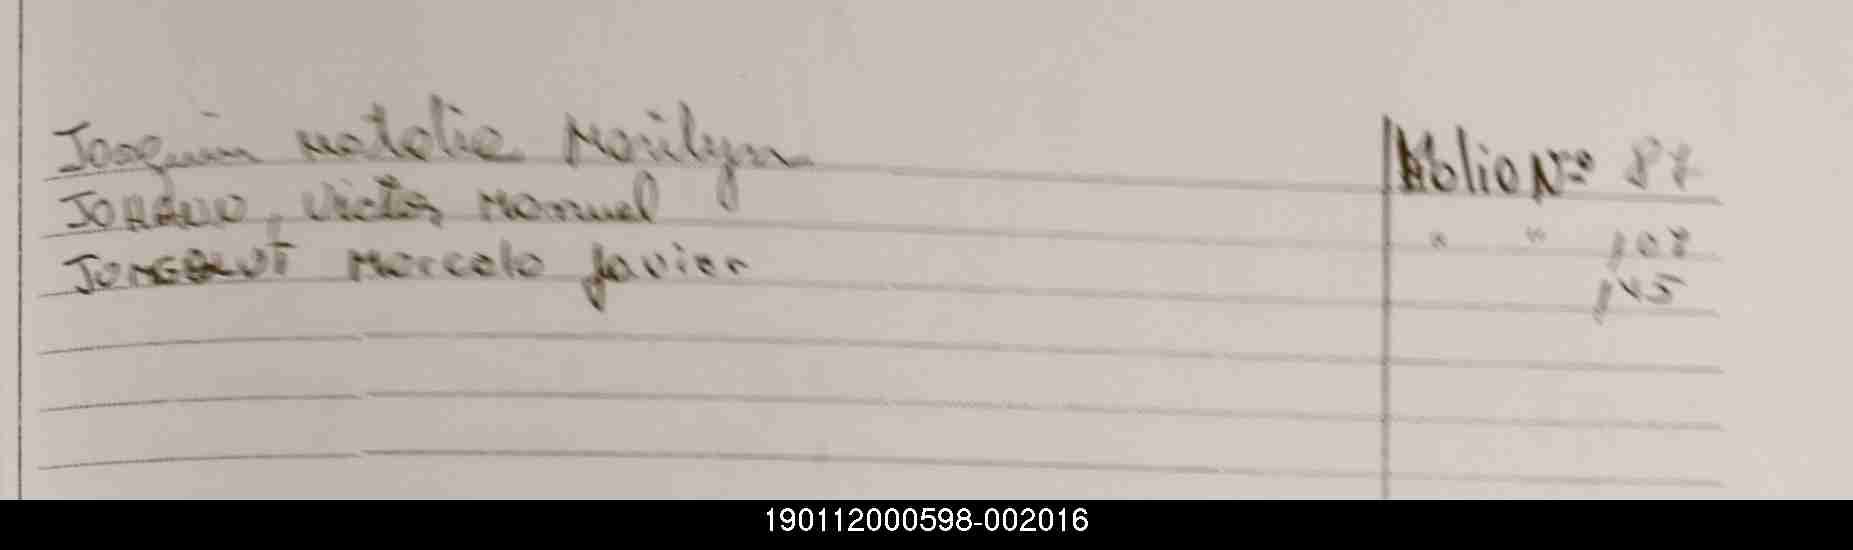 Joaquin Natalia Marilyn Folio Nº 87
JOHANO, Victor Manuel " " 107
JONGBLOT Marcelo Javier 145
190112000598-002016